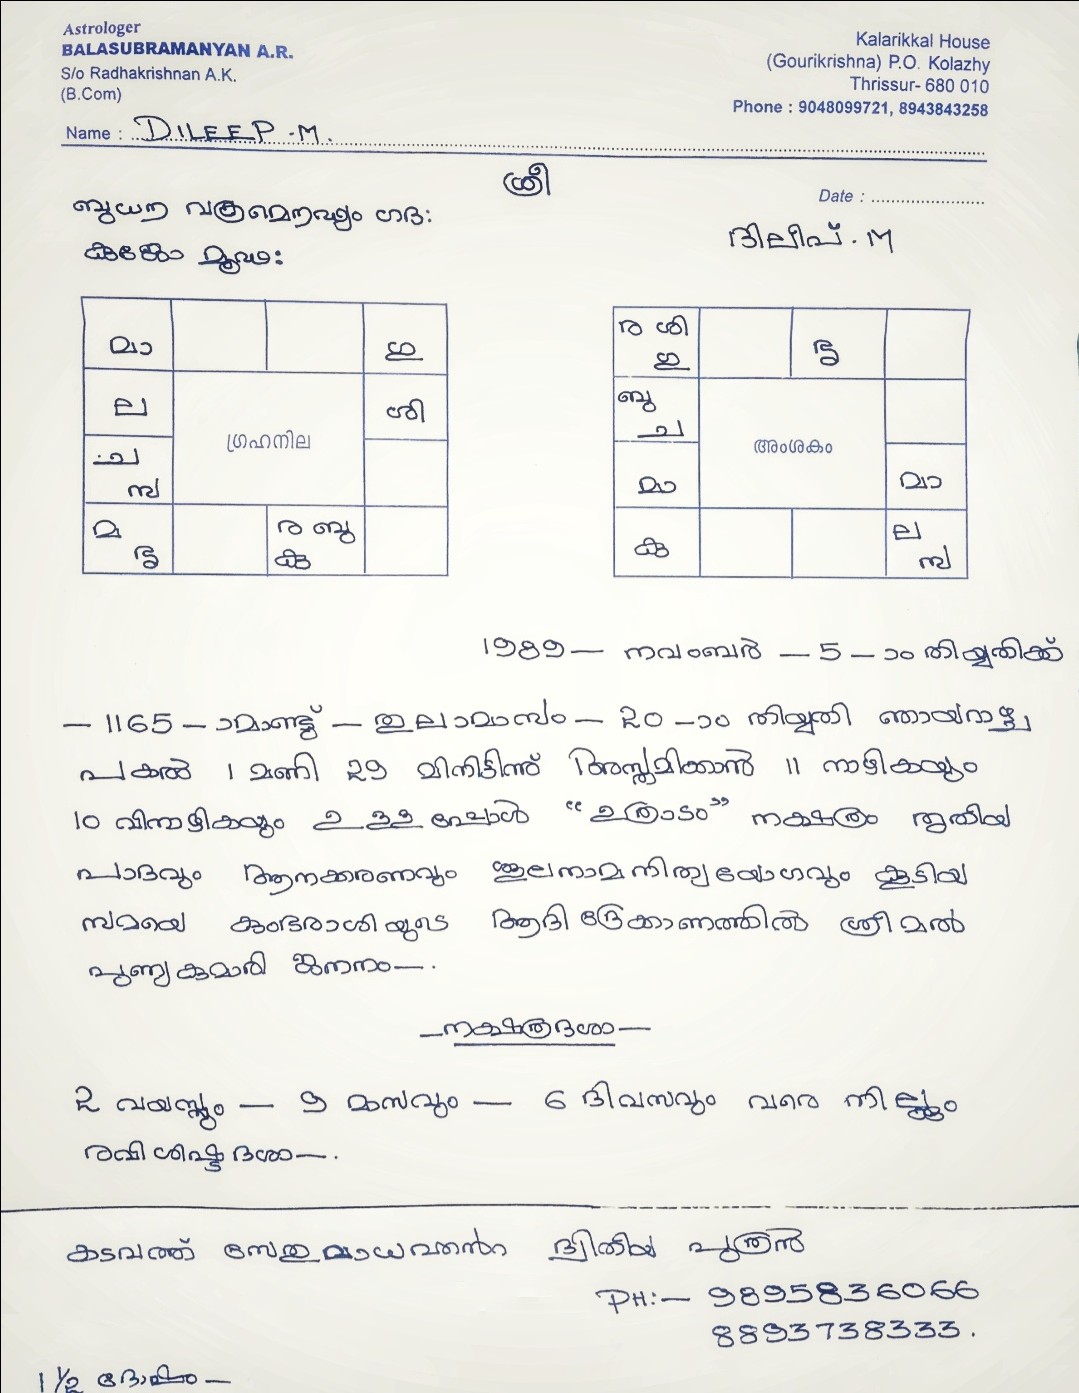 Astrologer
BALASUBRAMANYAN A.R.
S/o Radhakrishnan A.K.
(B.Com)
Kalarikkal House
(Gourikrishna) P.O. Kolazhy
Thrissur- 680 010
Phone : 9048099721, 8943843258
Name : DILEEP.M.
ശ്രീ
Date :
ബുധന വക്രമൌഢ്യം ഗദ:
കുജോ മൂഢ:
ദിലീപ്. M
മാ ഗു
ല ശി
ഗ്രഹനില
ച
സ
മ ര ബു
ശു കു
ര ശി ശു
ഗു
ബു
ച
അംശകം
മ മാ
കു ല
സ
1989 — നവംബർ — 5 — ാം തിയ്യതിക്ക്
— 1165 — ാമാണ്ട് — തുലാമാസം — 20 — ാം തിയ്യതി ഞായറാഴ്ച
പകൽ 1 മണി 29 മിനിട്ടിന്ന് അസ്തമിക്കാൻ 11 നാഴികയും
10 വിനാഴികയും ഉള്ളപ്പോൾ “ഉത്രാടം” നക്ഷത്രം തൃതീയ
പാദവും ആനക്കരണവും ശൂലനാമനിത്യയോഗവും കൂടിയ
സമയെ കുംഭരാശിയുടെ ആദി ദ്രേക്കാണത്തിൽ ശ്രീമൽ
പുണ്യകുമാരി ജനനം—.
—നക്ഷത്രദശാ—
2 വയസ്സും — 9 മാസവും — 6 ദിവസവും വരെ നില്ക്കും
രവിശിഷ്ടദശാ—.
കടവത്ത് സേതുമാധവൻെറ ദ്വിതീയ പുത്രൻ
PH:— 9895836066
8893738333.
1 ½ ദോഷം —